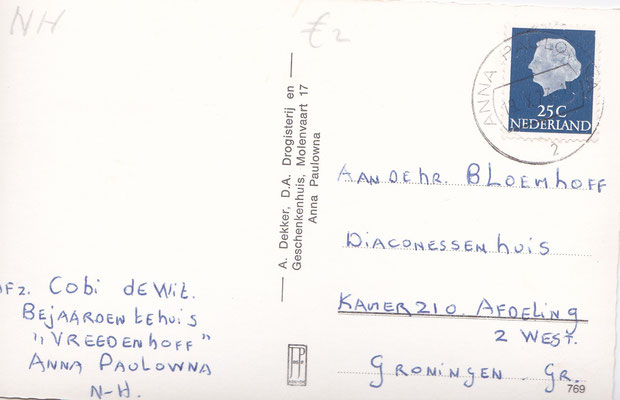 NH
€2
ANNA PAULOWNA
2
25C
NEDERLAND
A. Dekker, D.A. Drogisterij en
Geschenkenhuis, Molenvaart 17
Anna Paulowna
AAN DE HR. BLOEMHOFF
DIACONESSENHUIS
KAMER 210. AFDELING
2 WEST.
GRONINGEN GR.
AFZ. COBI DE WIT.
BEJAARDENTEHUIS
"VREEDENHOFF"
ANNA PAULOWNA
N-H.
769